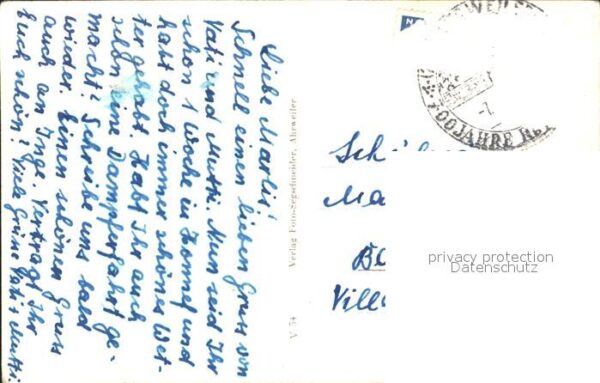 Liebe Marlis!
Schnell einen lieben Gruss von
Vati und Mutti. Nun seid Ihr
schon 1 Woche in Honnef und
hast doch immer schönes Wet-
ter gehabt. Habt Ihr auch
schon eine Dampferfahrt ge-
macht? Schreibe uns bald
wieder. Einen schönen Gruss
auch an Inge. Vertragt Ihr
Euch schön? Viele Grüsse Vati + Mutti
Verlag Foto-Zegschneider, Ahrweiler
V 54
700 JAHRE
Sch
Ma
Vill
privacy protection
Datenschutz